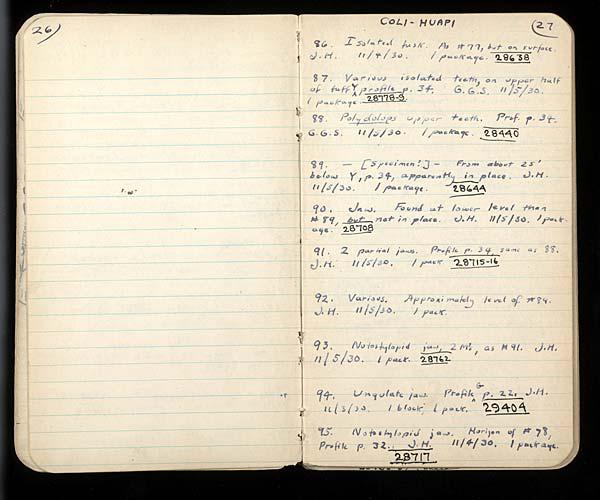 26
COLI-HUAPI
27
86. Isolated tusk. As #77, but on surface.
J.H. 11/4/30. 1 package. 28638
87. Various isolated teeth, on upper half
of tuff Y, profile p. 34. G.G.S. 11/5/30.
1 package. 28778-9
88. Polydolops upper teeth. Prof. p. 34.
G.G.S. 11/5/30. 1 package. 28440
89. — [Specimen?] — From about 25'
below Y, p. 34, apparently in place. J.H.
11/5/30. 1 package. 28644
90. Jaw. Found at lower level than
#89, but not in place. J.H. 11/5/30. 1 pack-
age. 28708
91. 2 partial jaws. Profile p. 34 same as 88.
J.H. 11/5/30. 1 pack 28715-16
92. Various. Approximately level of #89.
J.H. 11/5/30. 1 pack.
93. Notostylopid jaw, 2 M's, as #91. J.H.
11/5/30. 1 pack. 28762
94. Ungulate jaw. Profile G p. 22. J.H.
11/3/30. 1 block, 1 pack. 29404
95. Notostylopid jaw. Horizon of #78,
Profile p. 32. J.H. 11/4/30. 1 package.
28717